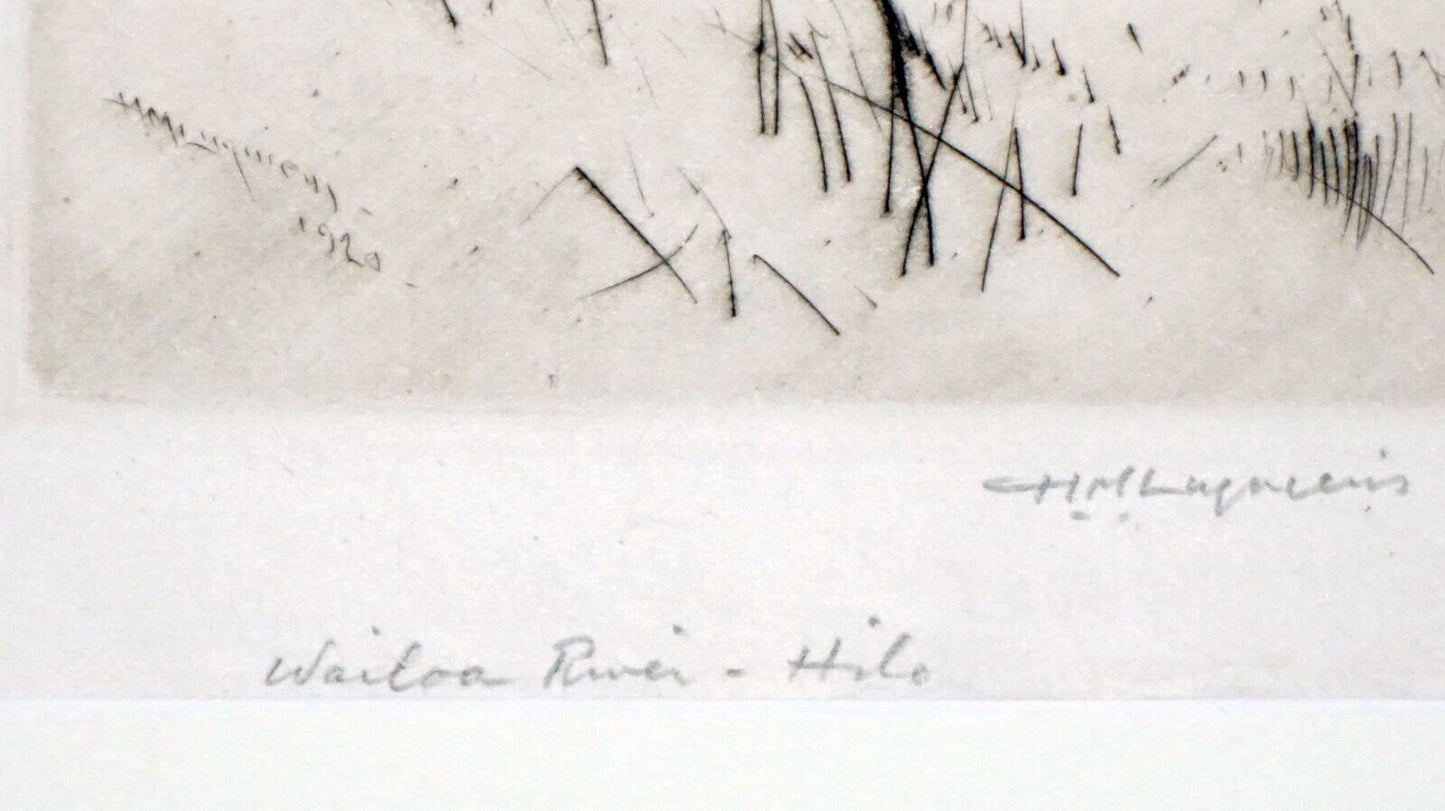 HM Luquiens
1920
HM Luquiens
Wailoa River - Hilo